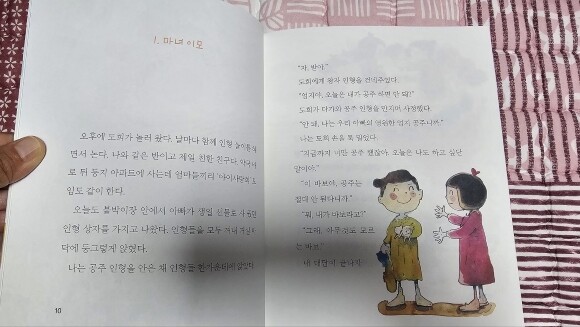 1. 마녀 이모
오후에 도희가 놀러 왔다. 날마다 함께 인형 놀이를 하
면서 논다. 나와 같은 반이고 제일 친한 친구다.
로 뒤 동지 아파트에 사는데 엄마들끼리
임도 같이 한다.
오늘도 붙박이장 안에서 아빠가 생일 선물로 사 준
인형 상자를 가지고 나왔다. 인형들을 모두 꺼내 거실 바
닥에 둥그렇게 앉혔다.
나는 공주 인형을 안은 채 인형들 한가운데에 앉았다
10
"자, 받아."
도희에게 왕자 인형을 건네주었다.
"엄지야, 오늘은 내가 공주 하면 안 돼?"
도희가 다가와 공주 인형을 만지며 사정했다.
"안 돼, 나는 우리 아빠의 영원한 엄지 공주니까."
나는 도희 손을 툭 밀었다.
"지금까지 너만 공주 했잖아. 오늘은 나도 하고 싶단
말이야."
"이 바보야, 공주는
절대 안 된다니까."
"뭐, 내가 바보라고?"
"그래, 아무것도 모르
는 바보."
내 대답이 끝나기